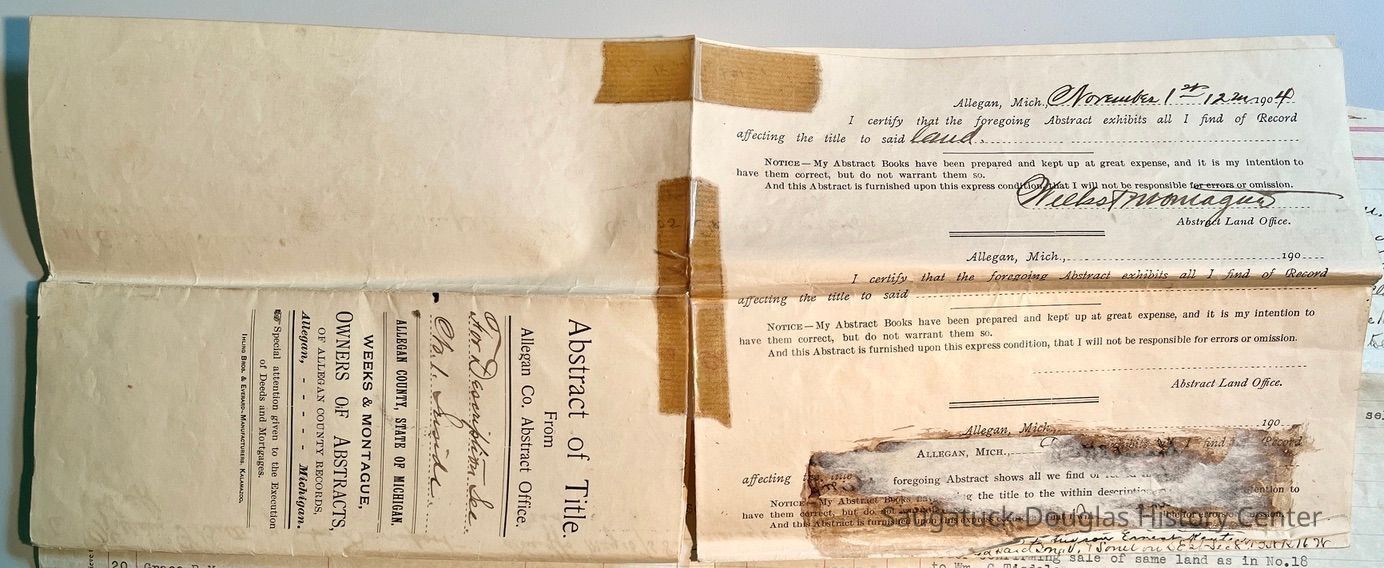 Abstract of Title.
From
Allegan Co. Abstract Office,
For Description See
No. 1. Inside
ALLEGAN COUNTY, STATE OF MICHIGAN.
WEEKS & MONTAGUE,
OWNERS OF ABSTRACTS,
OF ALLEGAN COUNTY RECORDS,
Allegan, - - - - - Michigan.
Special attention given to the Execution
of Deeds and Mortgages.
IHLING BROS. & EVERARD-MANUFACTURERS, KALAMAZOO.
Allegan, Mich., November 1st 12 m 1904
I certify that the foregoing Abstract exhibits all I find of Record
affecting the title to said land.
NOTICE—My Abstract Books have been prepared and kept up at great expense, and it is my intention to
have them correct, but do not warrant them so.
And this Abstract is furnished upon this express condition, that I will not be responsible for errors or omission.
Weeks & Montague
Abstract Land Office.
Allegan, Mich., 190
I certify that the foregoing Abstract exhibits all I find of Record
affecting the title to said
NOTICE—My Abstract Books have been prepared and kept up at great expense, and it is my intention to
have them correct, but do not warrant them so.
And this Abstract is furnished upon this express condition, that I will not be responsible for errors or omission.
Abstract Land Office.
Allegan, Mich. 190
find Record
ALLEGAN, MICH.,
affecting foregoing Abstract shows all we find
the title to the within
NOTICE—My Abstract Books
have them correct, but do not
And this Abstract is furnished
Saugatuck-Douglas History Center
sale of same land as in No.18
20
to Wm.